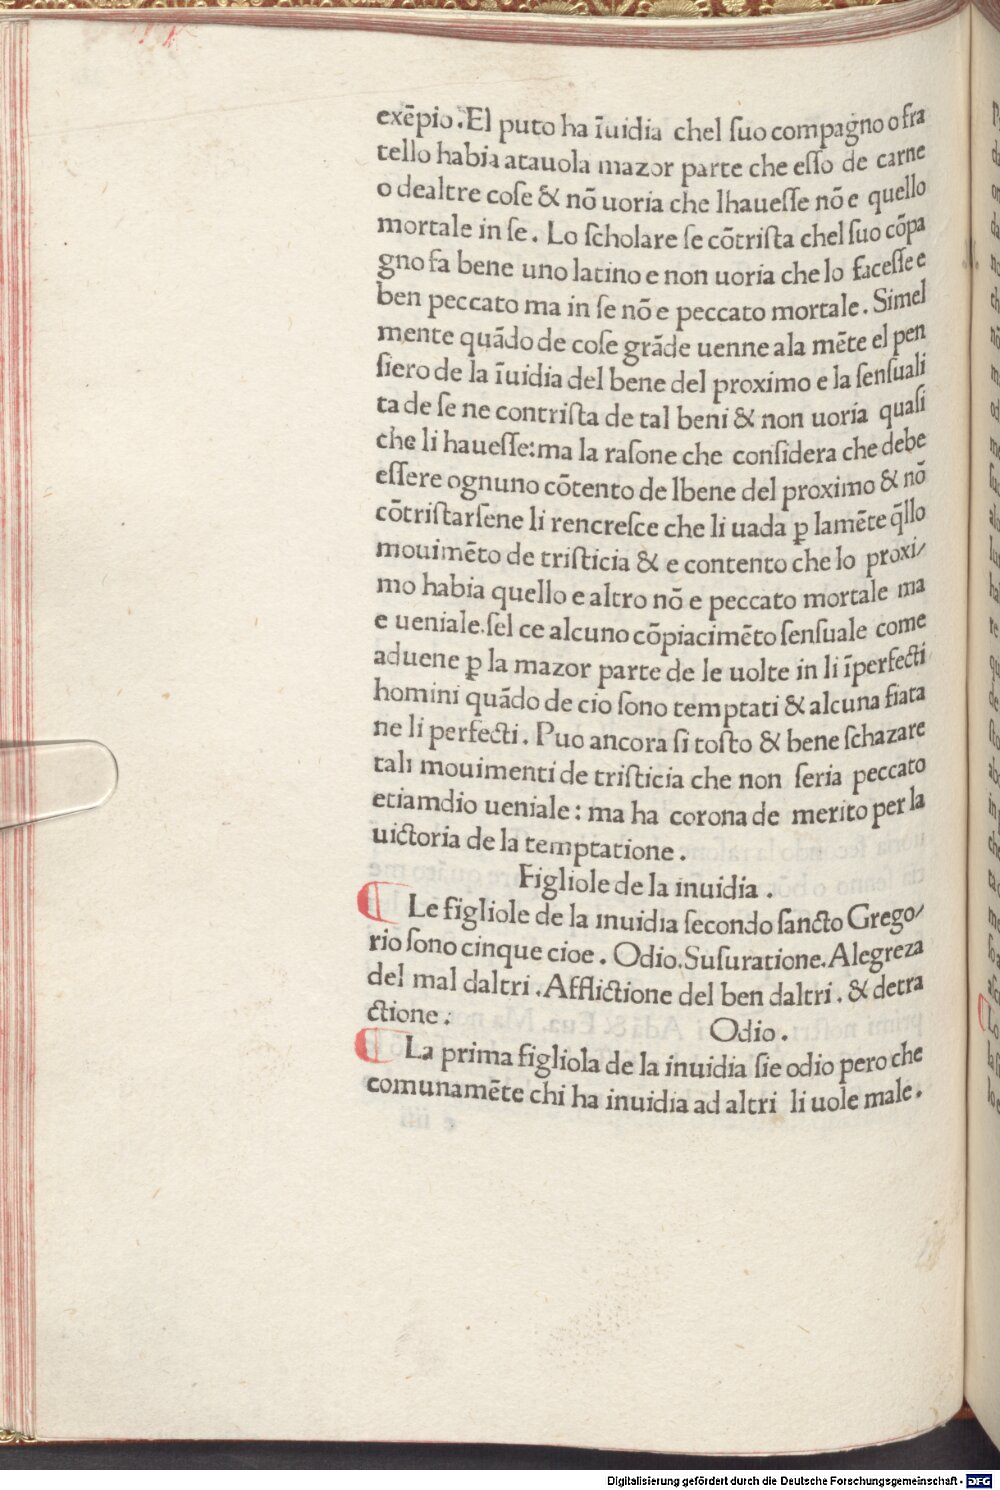 exēpio. El puto ha īuidia chel ſuo compagno o fra
tello habia atauola mazor parte che eſſo de carne
o dealtre coſe & nō uoria che lhaueſſe nō e quello
mortale in ſe. Lo ſcholare ſe cōtriſta chel ſuo cōpa
gno fa bene uno latino e non uoria che lo faceſſe e
ben peccato ma in ſe nō e peccato mortale. Simel
mente quādo de coſe grāde uenne ala mēte el pen
ſiero de la īuidia del bene del proximo e la ſenſuali
ta de ſe ne contriſta de tal beni & non uoria quaſi
che li haueſſe: ma la raſone che conſidera che debe
eſſere ognuno cōtento de lbene del proximo & nō
cōtriſtarſene li rencreſce che li uada ꝑ lamēte q̄llo
mouimēto de triſticia & e contento che lo proxi/
mo habia quello e altro nō e peccato mortale ma
e ueniale. ſel ce alcuno cōpiacimēto ſenſuale come
aduene ꝑ la mazor parte de le uolte in li īperfecti
homini quādo de cio ſono temptati & alcuna fiata
ne li perfecti. Puo ancora ſi toſto & bene ſchazare
tali mouimenti de triſticia che non ſeria peccato
etiamdio ueniale: ma ha corona de merito per la
uictoria de la temptatione.
Figliole de la inuidia.
Le figliole de la inuidia ſecondo ſancto Grego/
rio ſono cinque cioe. Odio. Suſuratione. Alegreza
del mal daltri. Afflictione del ben daltri. & detra
ctione:
Odio.
La prima figliola de la inuidia ſie odio pero che
comunamēte chi ha inuidia ad altri li uole male.
Digitalisierung gefördert durch die Deutsche Forschungsgemeinschaft - DFG